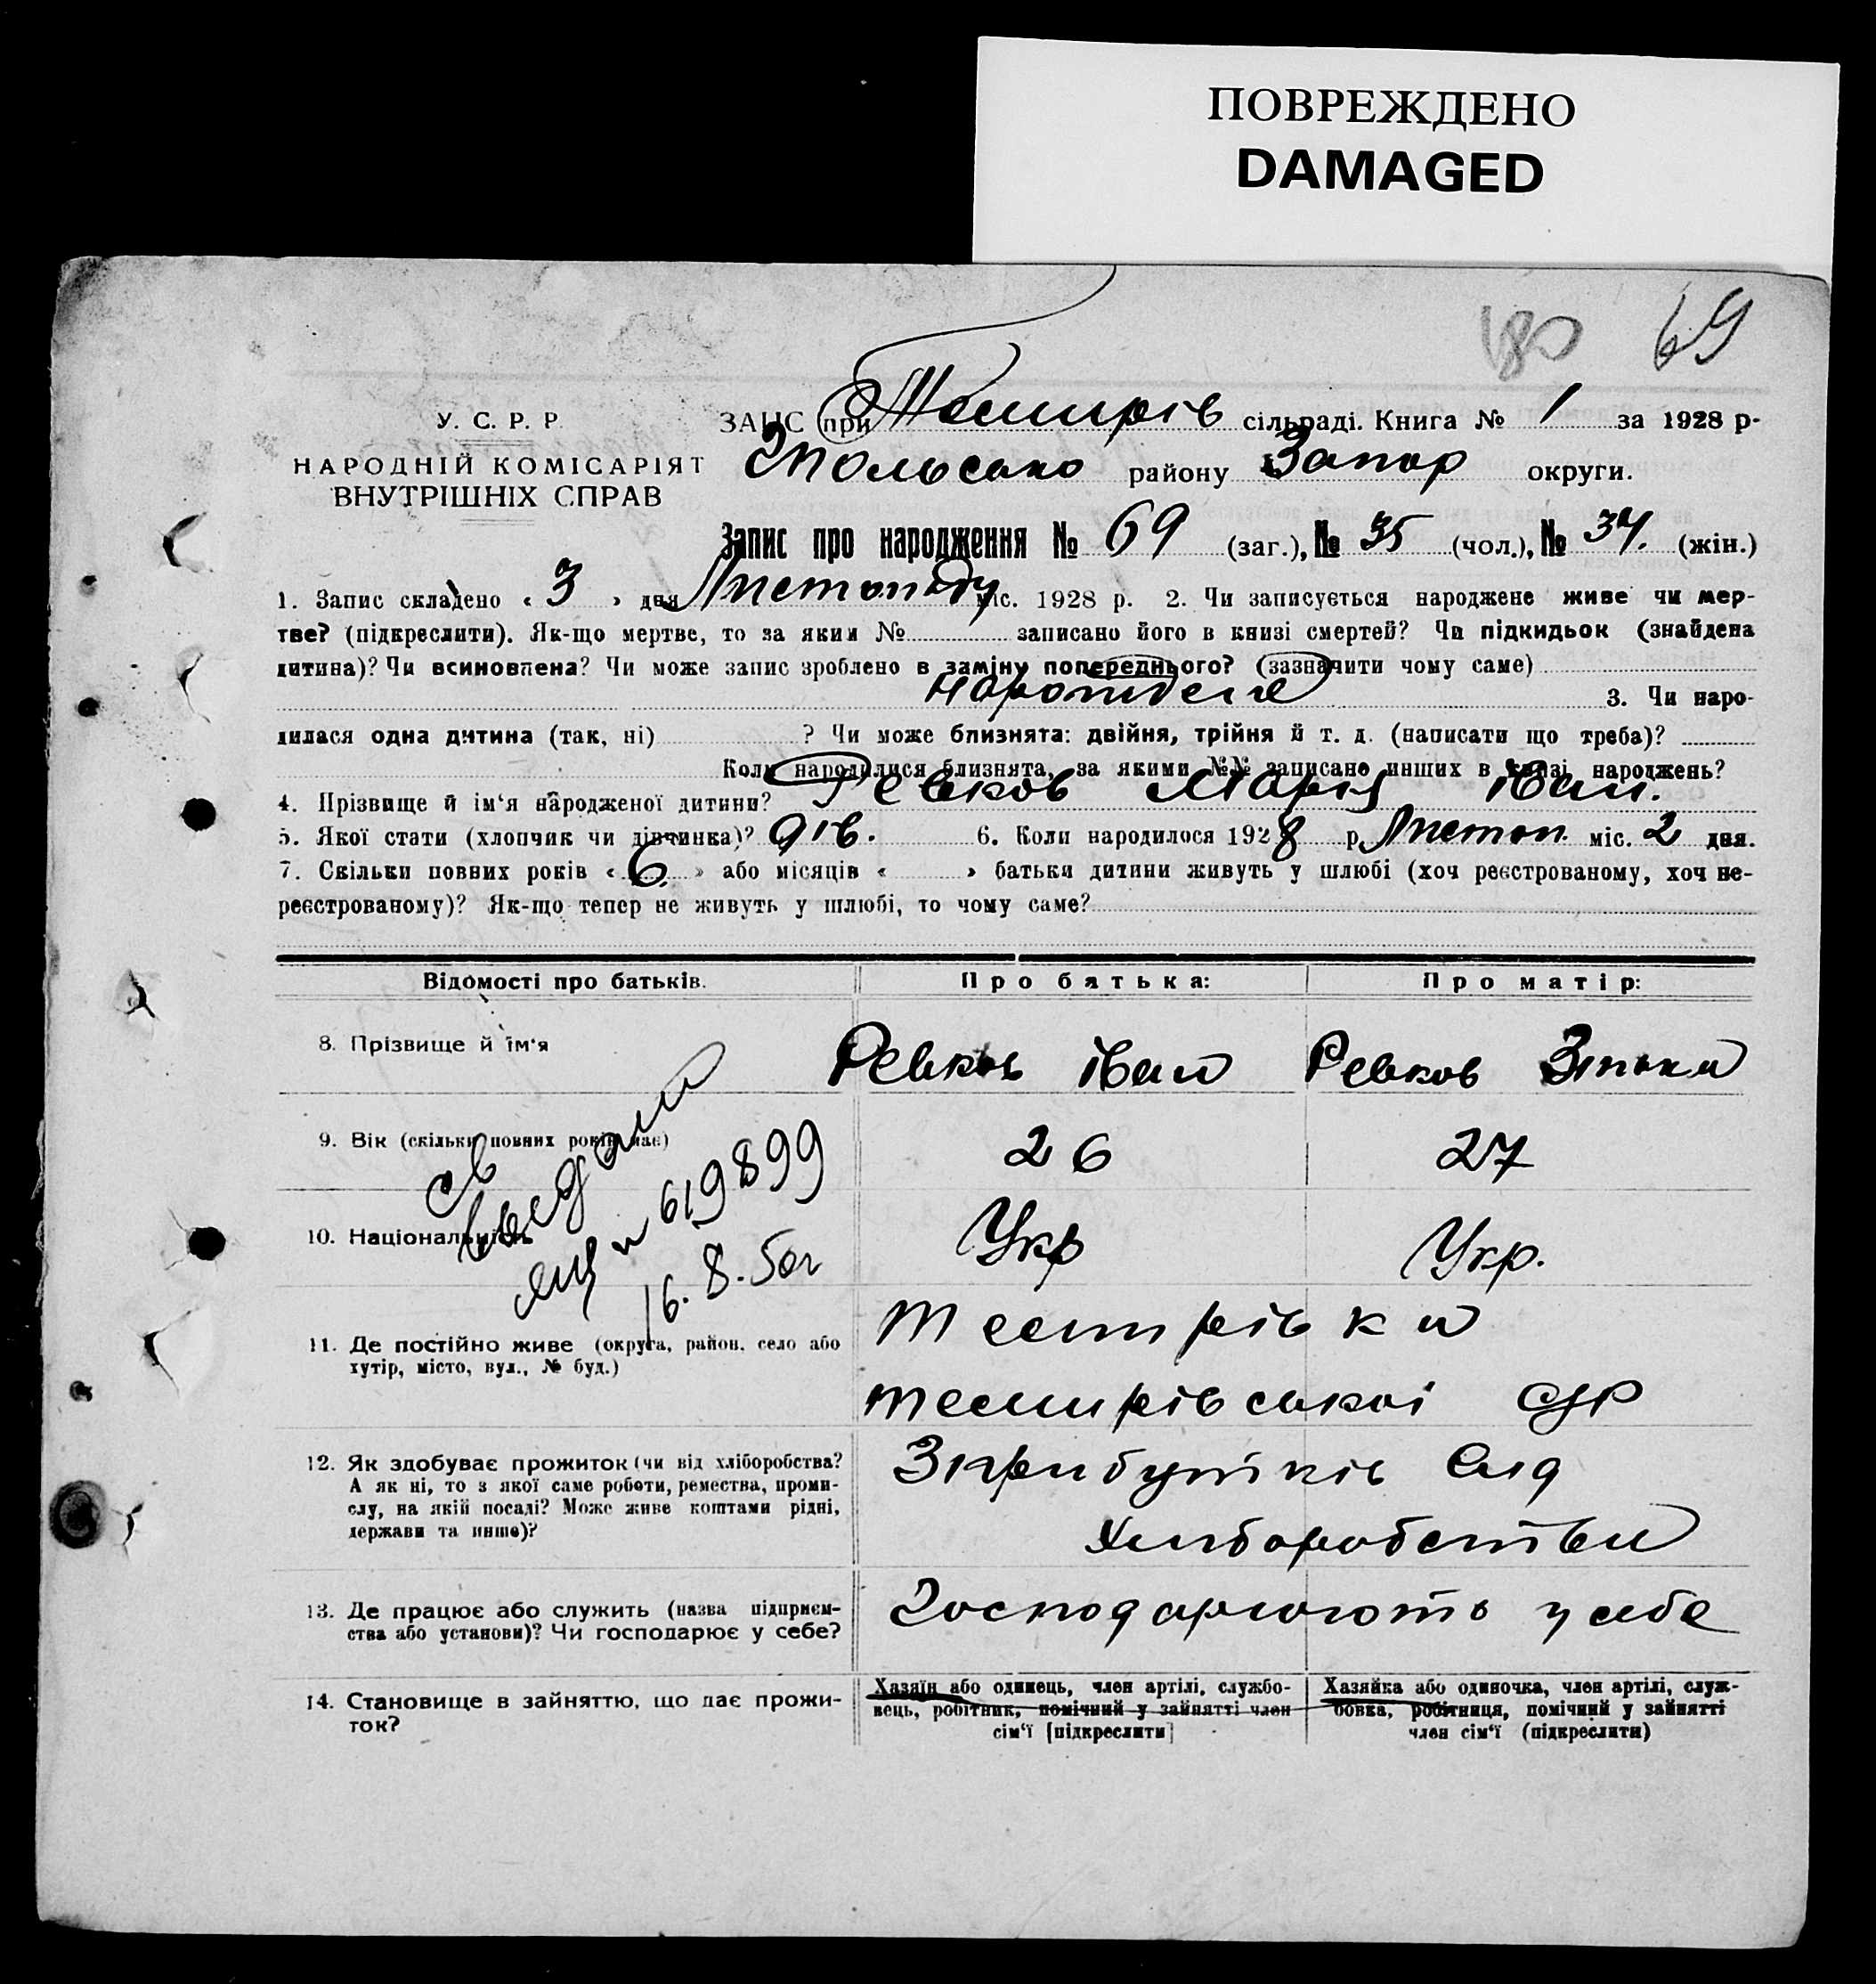 ПОВРЕЖДЕНО
DAMAGED
180 69
У. С. Р. Р.
НАРОДНІЙ КОМІСАРІЯТ
ВНУТРІШНІХ СПРАВ
ЗАГС при Темирів сільраді. Книга № 1 за 1928 р-
району Запор округи.
Запис про народження № 69 (заг.), № 35 (чол.), № 34. (жін.)
1. Запис складено « 3 » дня Листопаду міс. 1928 р. 2. Чи записується народжене живе чи мер-
тве? (підкреслити). Як-що мертве, то за яким № записано його в книзі смертей? Чи підкидьок (знайдена
дитина)? Чи всиновлена? Чи може запис зроблено в заміну попереднього? (зазначити чому саме)
3. Чи наро-
дилася одна дитина (так, ні) ? Чи може близнята: двійня, трійня й т. д. (написати що треба)?
Коли народилися близнята, за якими №№ записано инших в книзі народжень?
4. Прізвище й ім‘я народженої дитини? Ревков Марія Іван.
5. Якої стати (хлопчик чи дівчинка)? дів. 6. Коли народилося 1928 р. Листоп. міс. 2 дня.
7. Скільки повних років « 6. » або місяців « » батьки дитини живуть у шлюбі (хоч реєстрованому, хоч не-
реєстрованому)? Як-що тепер не живуть у шлюбі, то чому саме?
Відомості про батьків. Про батька: Про матір:
8. Прізвище й ім‘я Ревков Іван Ревков
9. Вік (скільки повних років має) 26 27
10. Національність Укр Укр.
св
выдано
№ 619899
16. 8. 50г
11. Де постійно живе (округа, район, село або
хутір, місто, вул., № буд.)
Темирівка
Темирівської с/р
12. Як здобуває прожиток (чи від хліборобства?
А як ні, то з якої саме роботи, ремества, проми-
слу, на якій посаді? Може живе коштами рідні,
держави та инше)?
З прибутків від
хліборобства
13. Де працює або служить (назва підприєм-
ства або установи)? Чи господарює у себе?
Господарюють у себе
14. Становище в зайняттю, що дає прожи-
ток?
Хазяїн або одинець, член артілі, службо-
вець, робітник, помічний у зайнятті член
сім‘ї [підкреслити]
Хазяйка або одиночка, член артілі, служ-
бовка, робітниця, помічний у зайнятті
член сім‘ї (підкреслити)